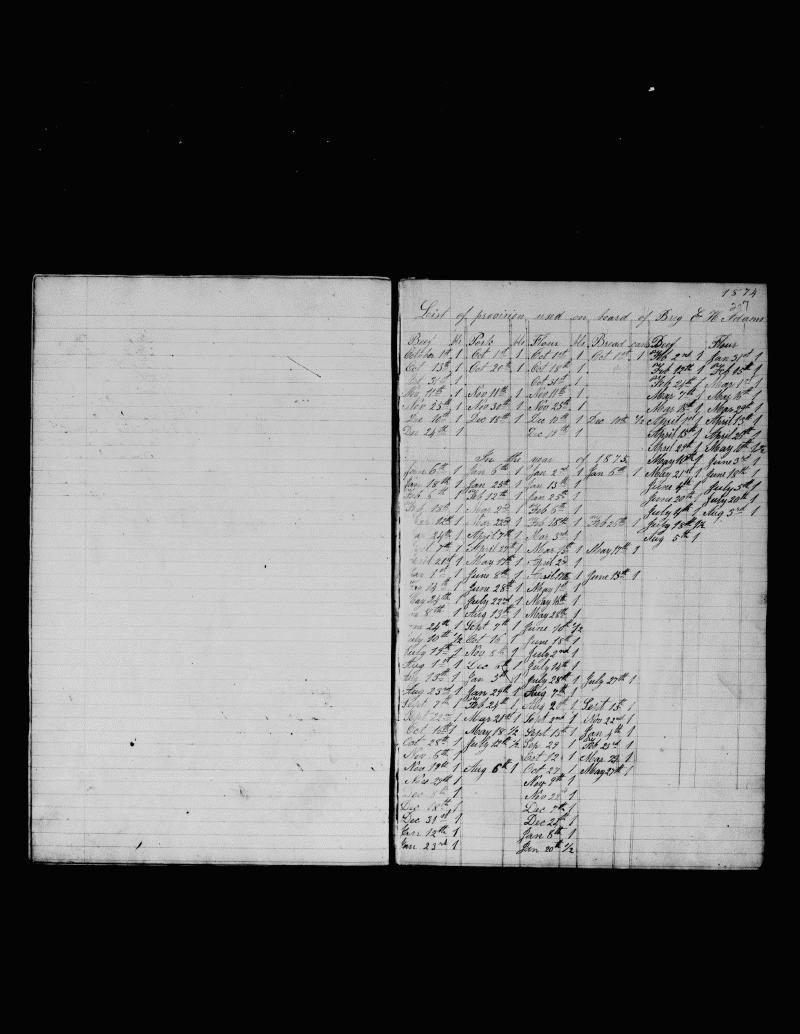 1874
27
List of provision used on board of Brig E H Adams
Beef bls Pork bls Flour bls Bread cans Beef Flour
October 1st 1 Oct 1st 1 Oct 1st 1 Oct 1st 1 Feb 2nd 1 Jan 31st 1
Oct 13th 1 Oct 20th 1 Oct 18th 1 Feb 12th 1 Feb 15th 1
Oct 31st 1 Oct 31st 1 Feb 24th 1 Mar 1st 1
Nov 11th 1 Nov 11th 1 Nov 11th 1 Mar 7th 1 Mar 16th 1
Nov 23th 1 Nov 30th 1 Nov 25th 1 Mar 18th 1 Mar 29th 1
Dec 10th 1 Dec 18th 1 Dec 10th 1 Dec 10th 1/2 April 1st 1 April 13th 1
Dec 24th 1 Dec 17th 1 April 15th 1 April 28th 1
April 29th 1 May 6th 1/2
In the year of 1875 May 10th 1 June 3rd 1
Jan 6th 1 Jan 6th 1 Jan 2nd 1 Jan 6th 1 May 21st 1 June 18th 1
Jan 18th 1 Jan 25th 1 Jan 13th 1 June 4th 1 July 3th 1
Feb 6th 1 Feb 12th 1 Jan 25th 1 June 20th 1 July 20th 1
Feb 18th 1 Mar 2nd 1 Feb 6th 1 July 4th 1 Aug 3rd 1
Mar 12th 1 Mar 22nd 1 Feb 18th 1 Feb 25th 1 July 18th 1/2
Mar 24th 1 April 7th 1 Mar 3rd 1 Aug 5th 1
April 7th 1 April 27th 1 Mar 15th 1 May 17th 1
April 21st 1 May 19th 1 April 2nd 1
May 1st 1 June 8th 1 April 17th 1 June 13th 1
May 14th 1 June 28th 1 May 1st 1
May 24th 1 July 22nd 1 May 16th 1
June 8th 1 Aug 13th 1 May 28th 1
June 24th 1 Sept 7th 1 June 10th 1/2
July 10th 1/2 Oct 16 1 June 18th 1
July 19th 1 Nov 8th 1 July 2nd 1
Aug 1st 1 Dec 1 July 14th 1
13th 1 Jan 3rd 1 July 28th 1 July 27th 1
Aug 25th 1 Jan 29th 1 Aug 7th 1
Sept 7th 1 Feb 24th 1 Aug 20th 1 Sept 13th 1
Sept 22nd 1 Mar 28th 1 Sept 2nd 1 Nov 22nd 1
Oct 16th 1 May 18 1/2 Sept 15th 1 Jan 4th 1
Oct 28th 1 July 12th 1/2 Sep 29 1 Feb 21st 1
Nov 6th 1 Oct 12 1 Mar 23 1
Nov 19th 1 Aug 6th 1 Oct 27 1 May 27th 1
Nov 29th 1 Nov 9th 1
Dec 1 Nov 22nd 1
Dec 18th 1 Dec 7th 1
Dec 31st 1 Dec 24th 1
Jan 12th 1 Jan 8th 1
Jan 23rd 1 Jan 20th 1/2